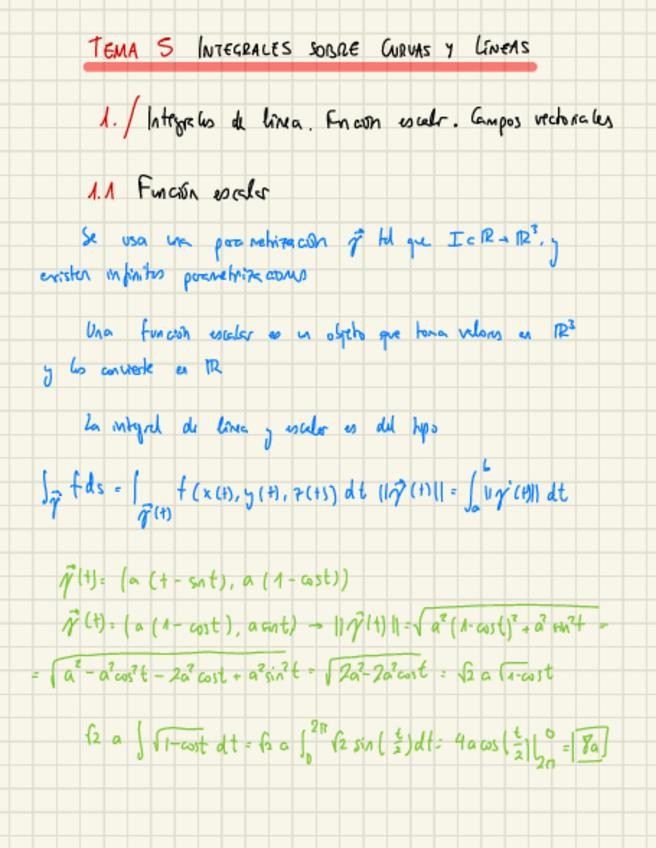 TEMA 5 INTEGRALES SOBRE CURVAS Y LÍNEAS
1./ Integrales de línea. Función escalar. Campos vectoriales
1.1 Función escalar
Se usa una parametrización γ⃗ tal que I⊂ℝ→ℝ³, y
existen infinitas parametrizaciones
Una función escalar es un objeto que toma valores en ℝ³
y los convierte en ℝ
La integral de línea y escalar es del tipo
∫_γ⃗ f ds = ∫_γ⃗(t) f(x(t), y(t), z(t)) dt ||γ⃗'(t)|| = ∫_a^b ||γ'(t)|| dt
γ⃗(t) = (a(t - snt), a(1 - cost))
γ⃗'(t) = (a(1 - cost), a sint) → ||γ⃗'(t)|| = √(a²(1-cost)² + a² sin²t) =
= √(a² - a²cos²t - 2a²cost + a²sin²t) = √(2a² - 2a²cost) = √2 a √(1-cost)
√2 a ∫ √(1-cost) dt = √2 a ∫_0^2π √2 sin(t/2) dt = 4a cos(t/2)|_2π^0 = 8a